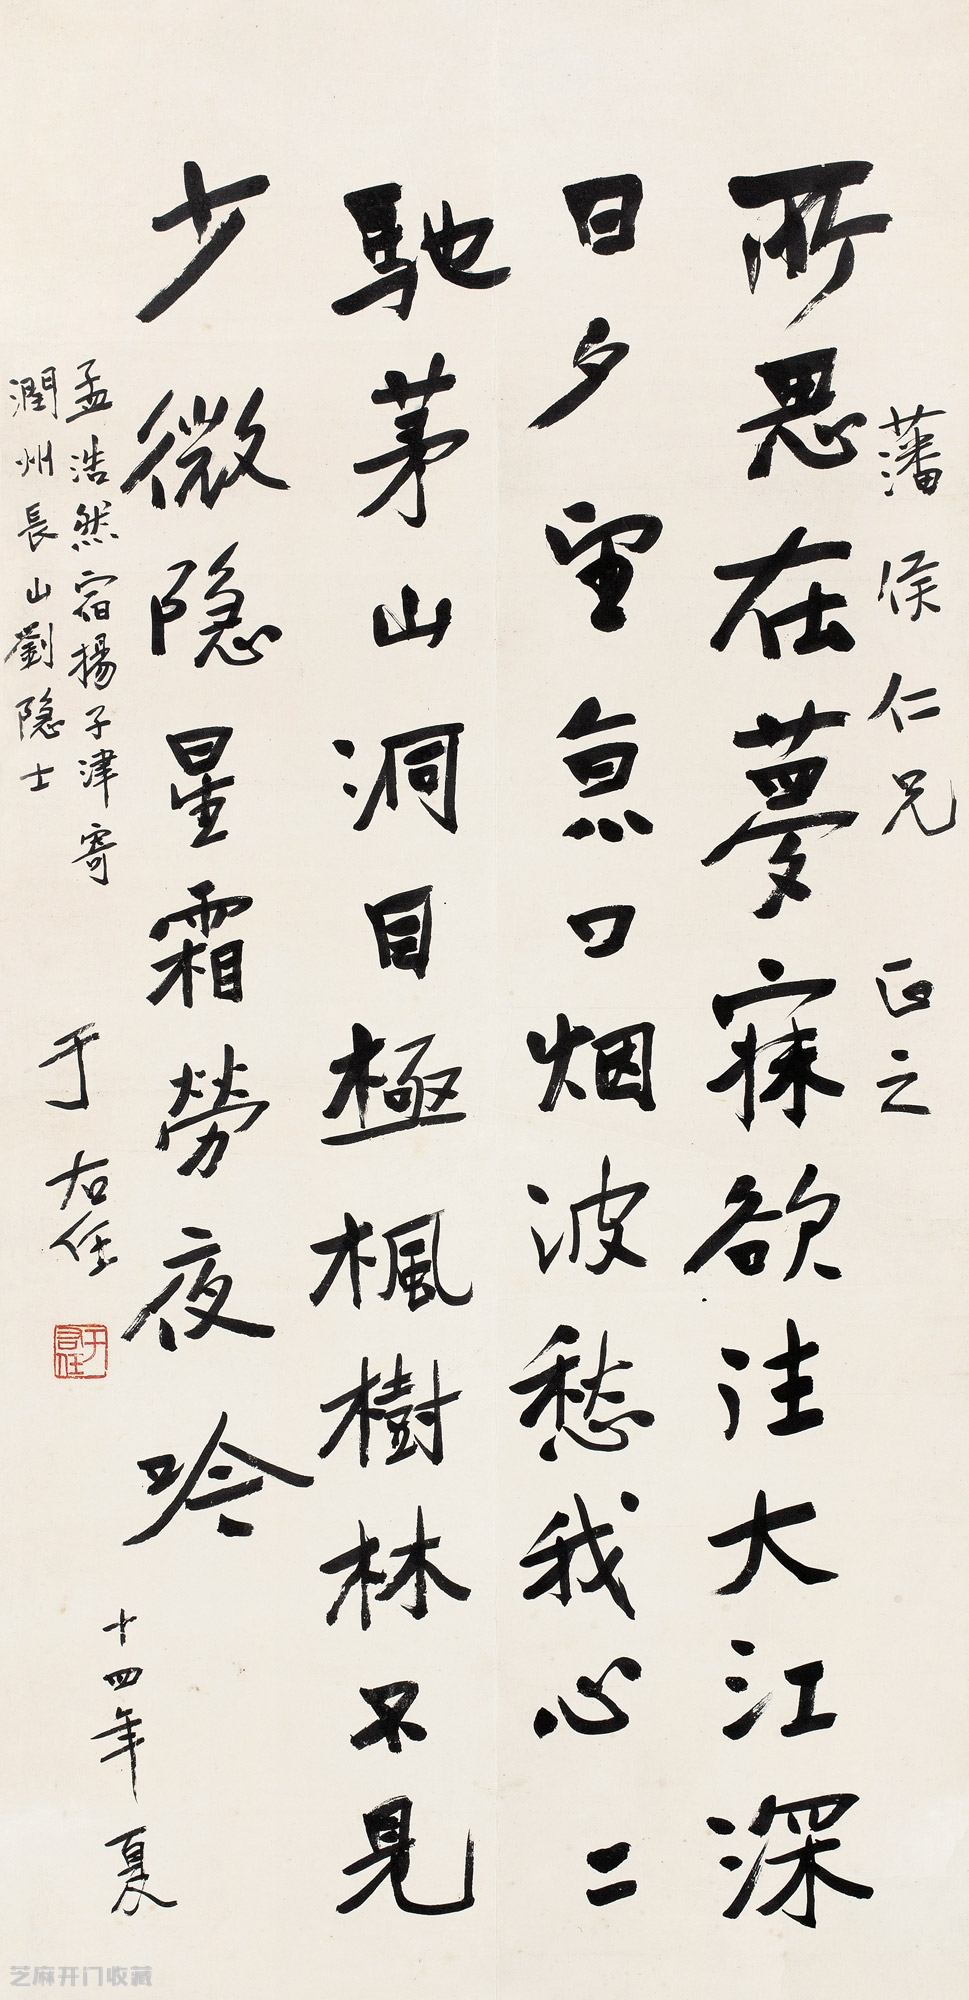 藩侯仁兄 正之
所思在夢寐欲往大江深
日夕望京口烟波愁我心二
馳茅山洞目極楓樹林不見
少微隐星霜勞夜吟 十四年夏
孟浩然宿揚子津寄
潤州長山劉隐士
于右任
于右任
芝麻开门收藏